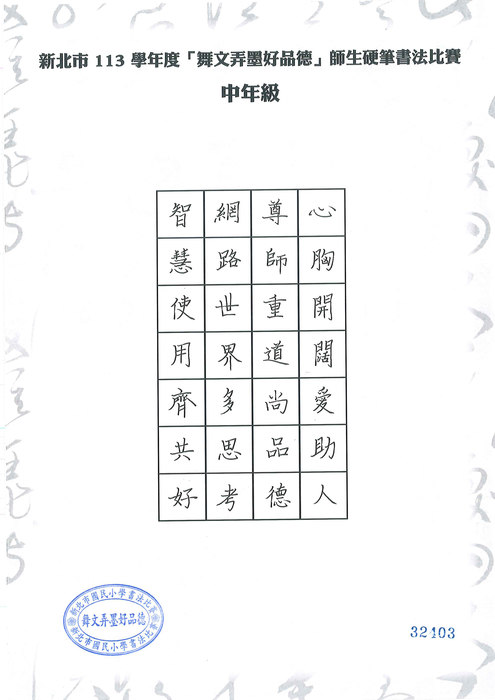 新北市 113 學年度「舞文弄墨好品德」師生硬筆書法比賽
中年級
心胸開闊愛助人
尊師重道尚品德
網路世界多思考
智慧使用齊共好
新北市國民小學書法比賽
舞文弄墨好品德
新北市國民小學書法比賽
32103